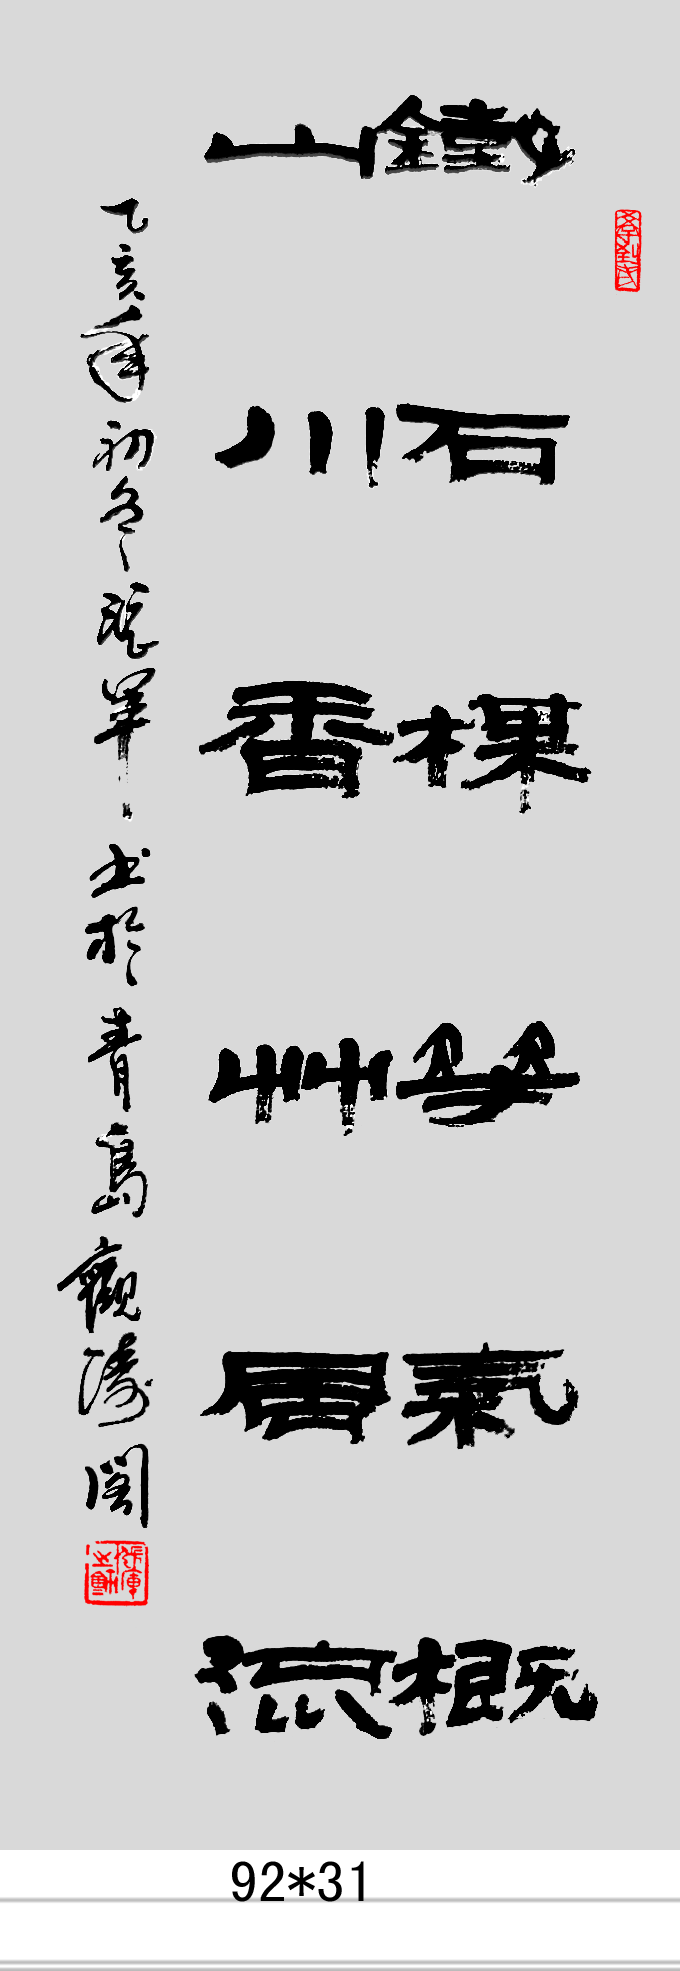 鐵石楳花氣概
山川香艸風流
乙亥年初冬張軍書於青島觀濤閣
92*31